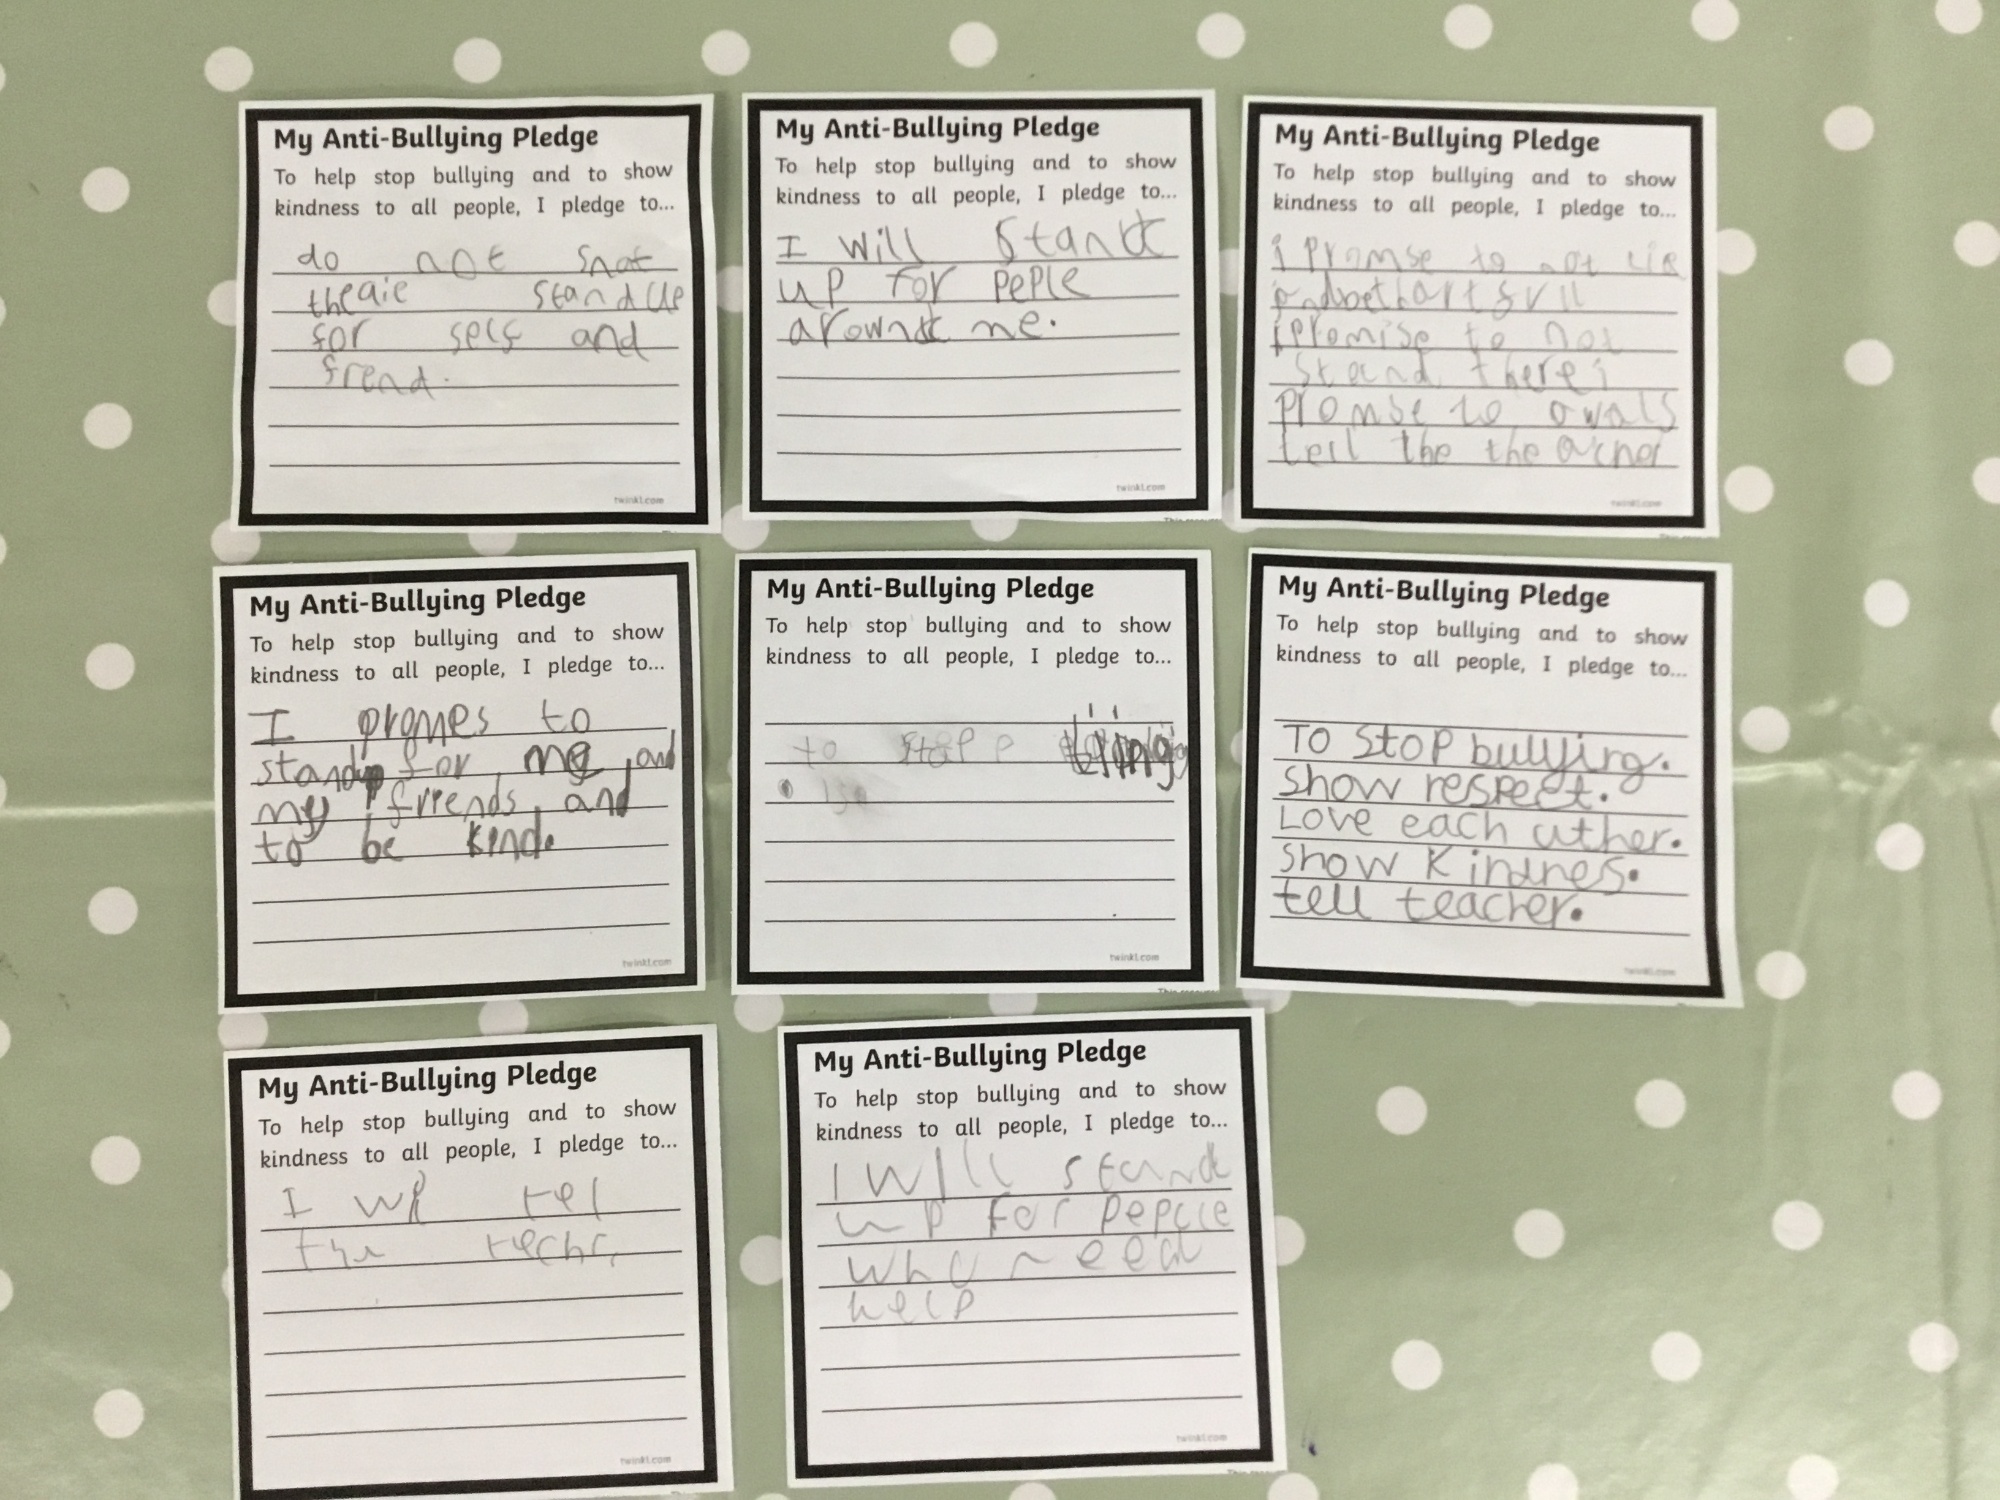 My Anti-Bullying Pledge
To help stop bullying and to show
kindness to all people, I pledge to...
do not snat
theaie stand up
for self and
frend.
twinkl.com
My Anti-Bullying Pledge
To help stop bullying and to show
kindness to all people, I pledge to...
I will stand
up for peple
arownd me.
twinkl.com
My Anti-Bullying Pledge
To help stop bullying and to show
kindness to all people, I pledge to...
i promse to not lie
i promise to not
stand there i
promse to owals
tell the the
twinkl.com
My Anti-Bullying Pledge
To help stop bullying and to show
kindness to all people, I pledge to...
I promes to
standup for me and
my friends and
to be kind.
twinkl.com
My Anti-Bullying Pledge
To help stop bullying and to show
kindness to all people, I pledge to...
to stop
twinkl.com
My Anti-Bullying Pledge
To help stop bullying and to show
kindness to all people, I pledge to...
To stop bullying.
show respect.
Love each uther.
show Kindnes.
tell teacher.
twinkl.com
My Anti-Bullying Pledge
To help stop bullying and to show
kindness to all people, I pledge to...
I wil tel
the techr.
twinkl.com
My Anti-Bullying Pledge
To help stop bullying and to show
kindness to all people, I pledge to...
I will stand
up for pepcle
who need
help
twinkl.com